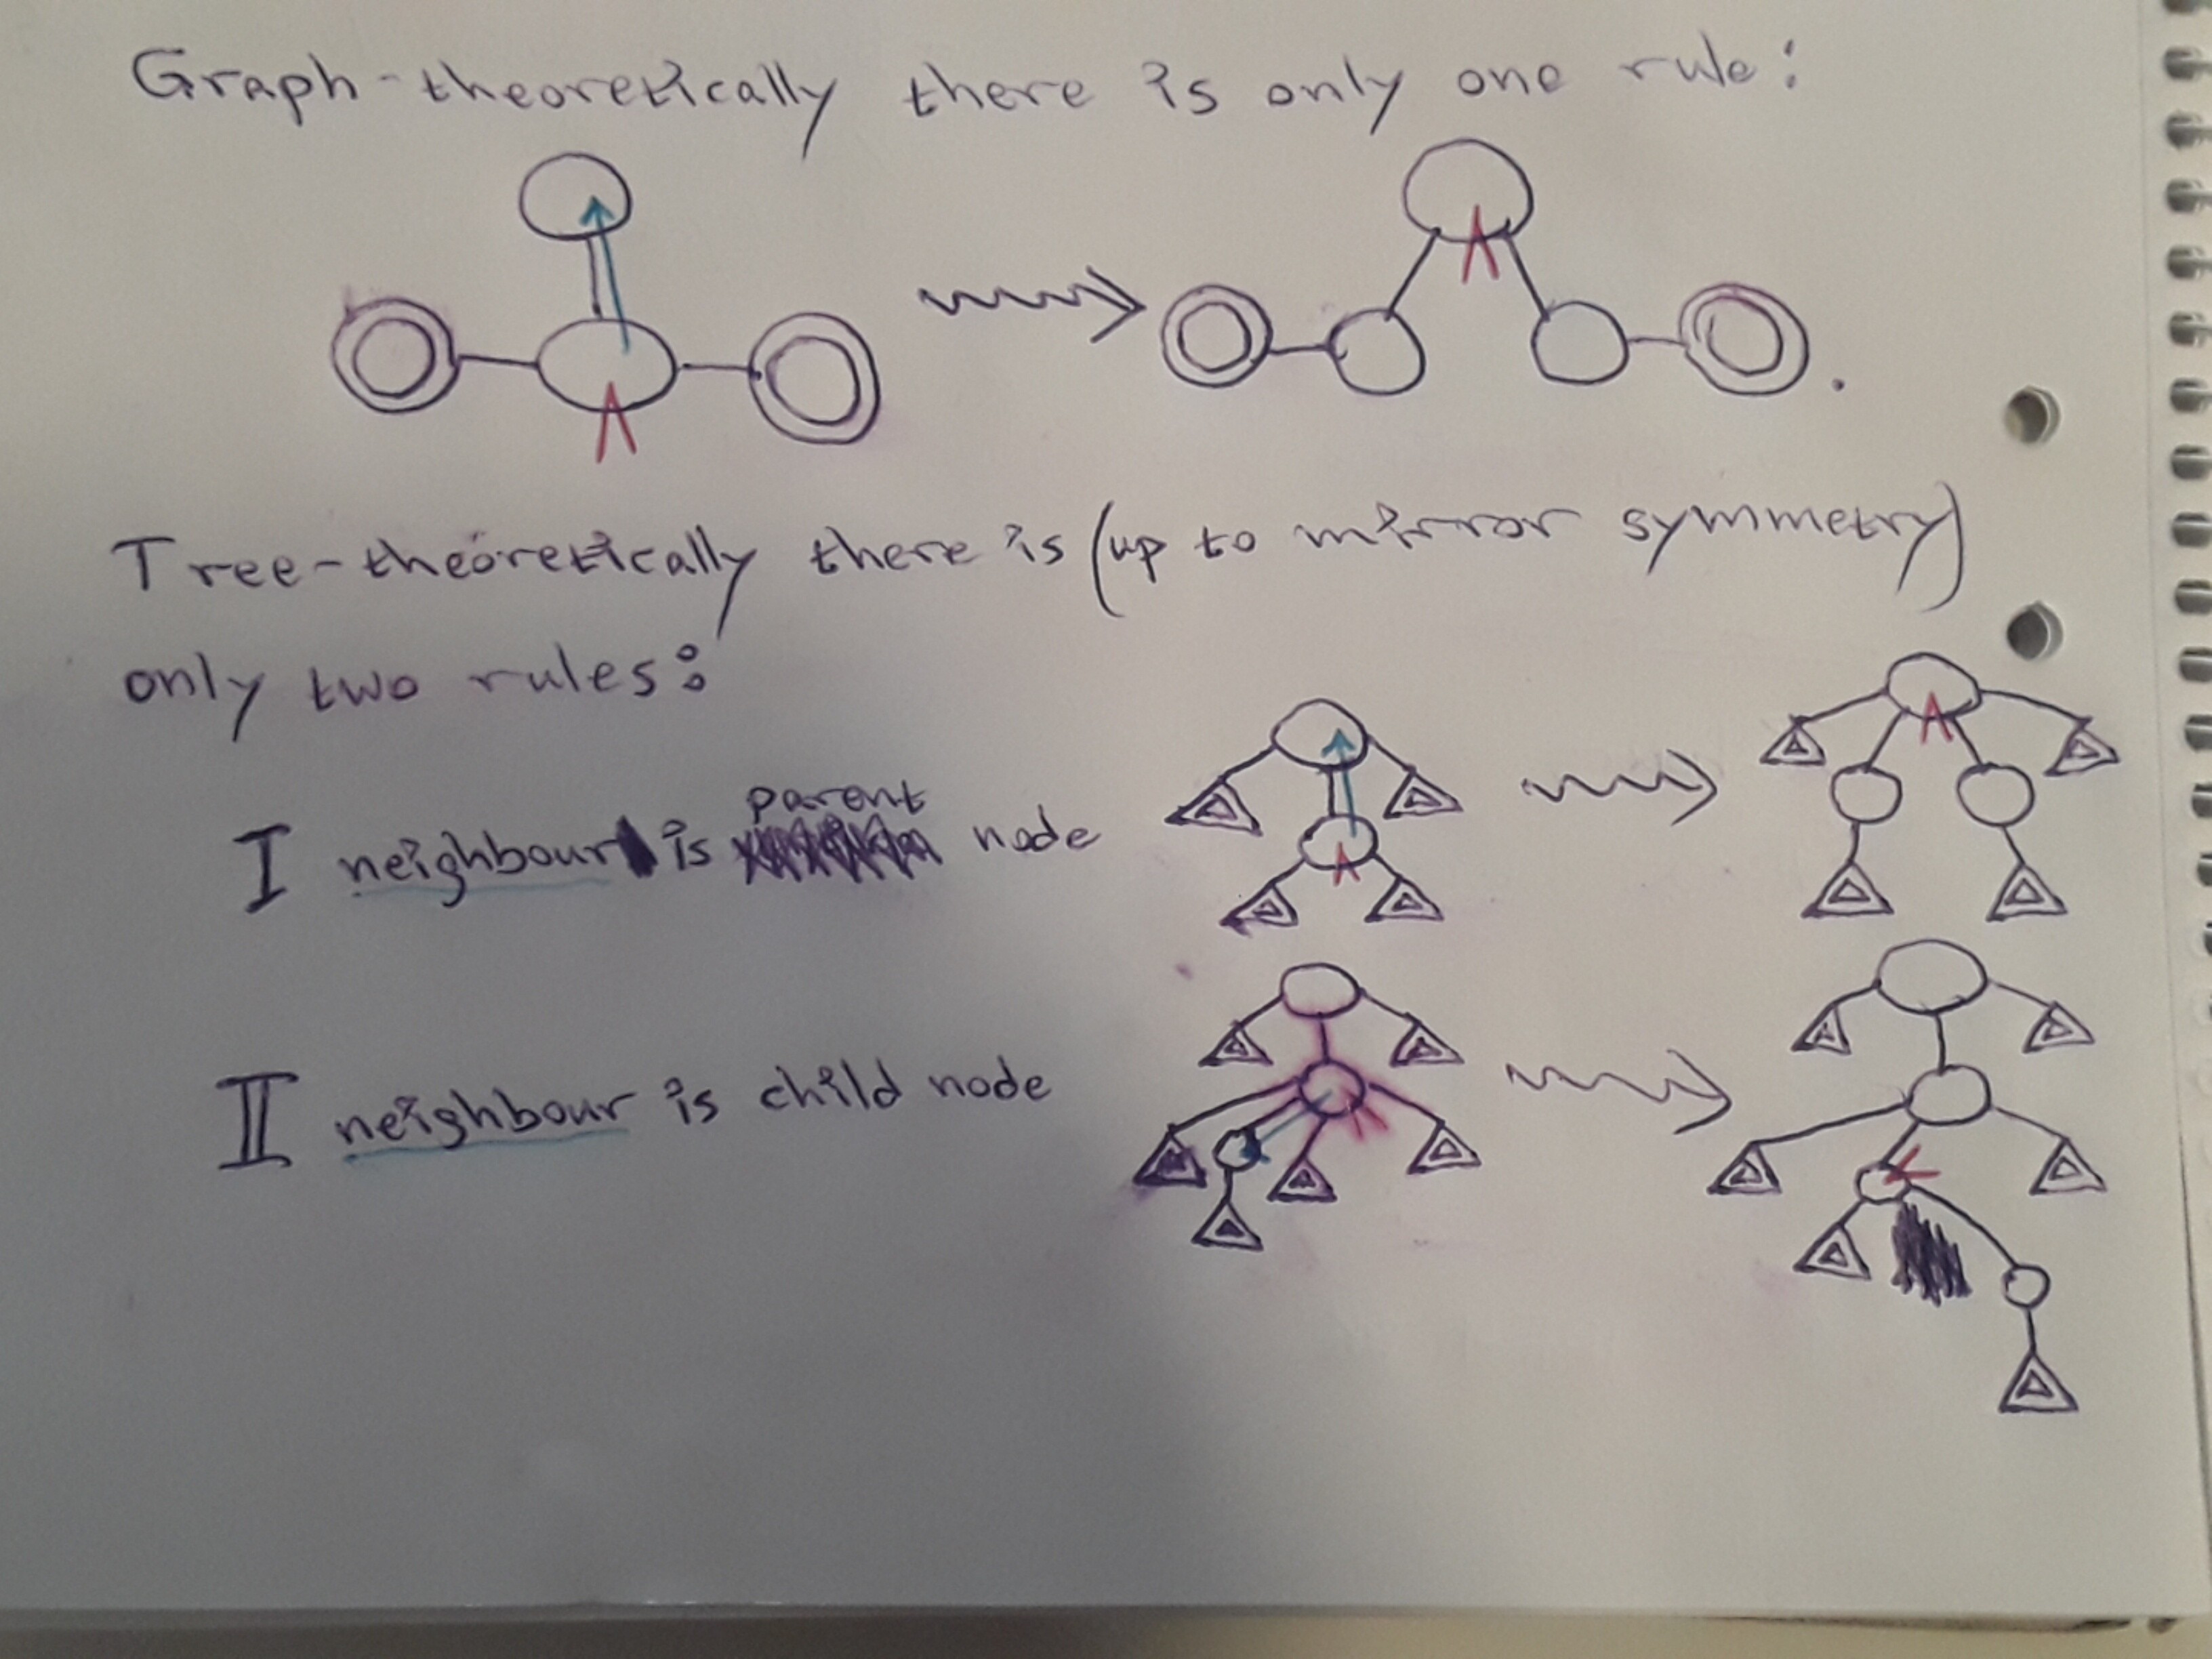 Graph-theoretically there is only one rule:
Tree-theoretically there is (up to mirror symmetry)
only two rules:
I neighbour is parent node
II neighbour is child node